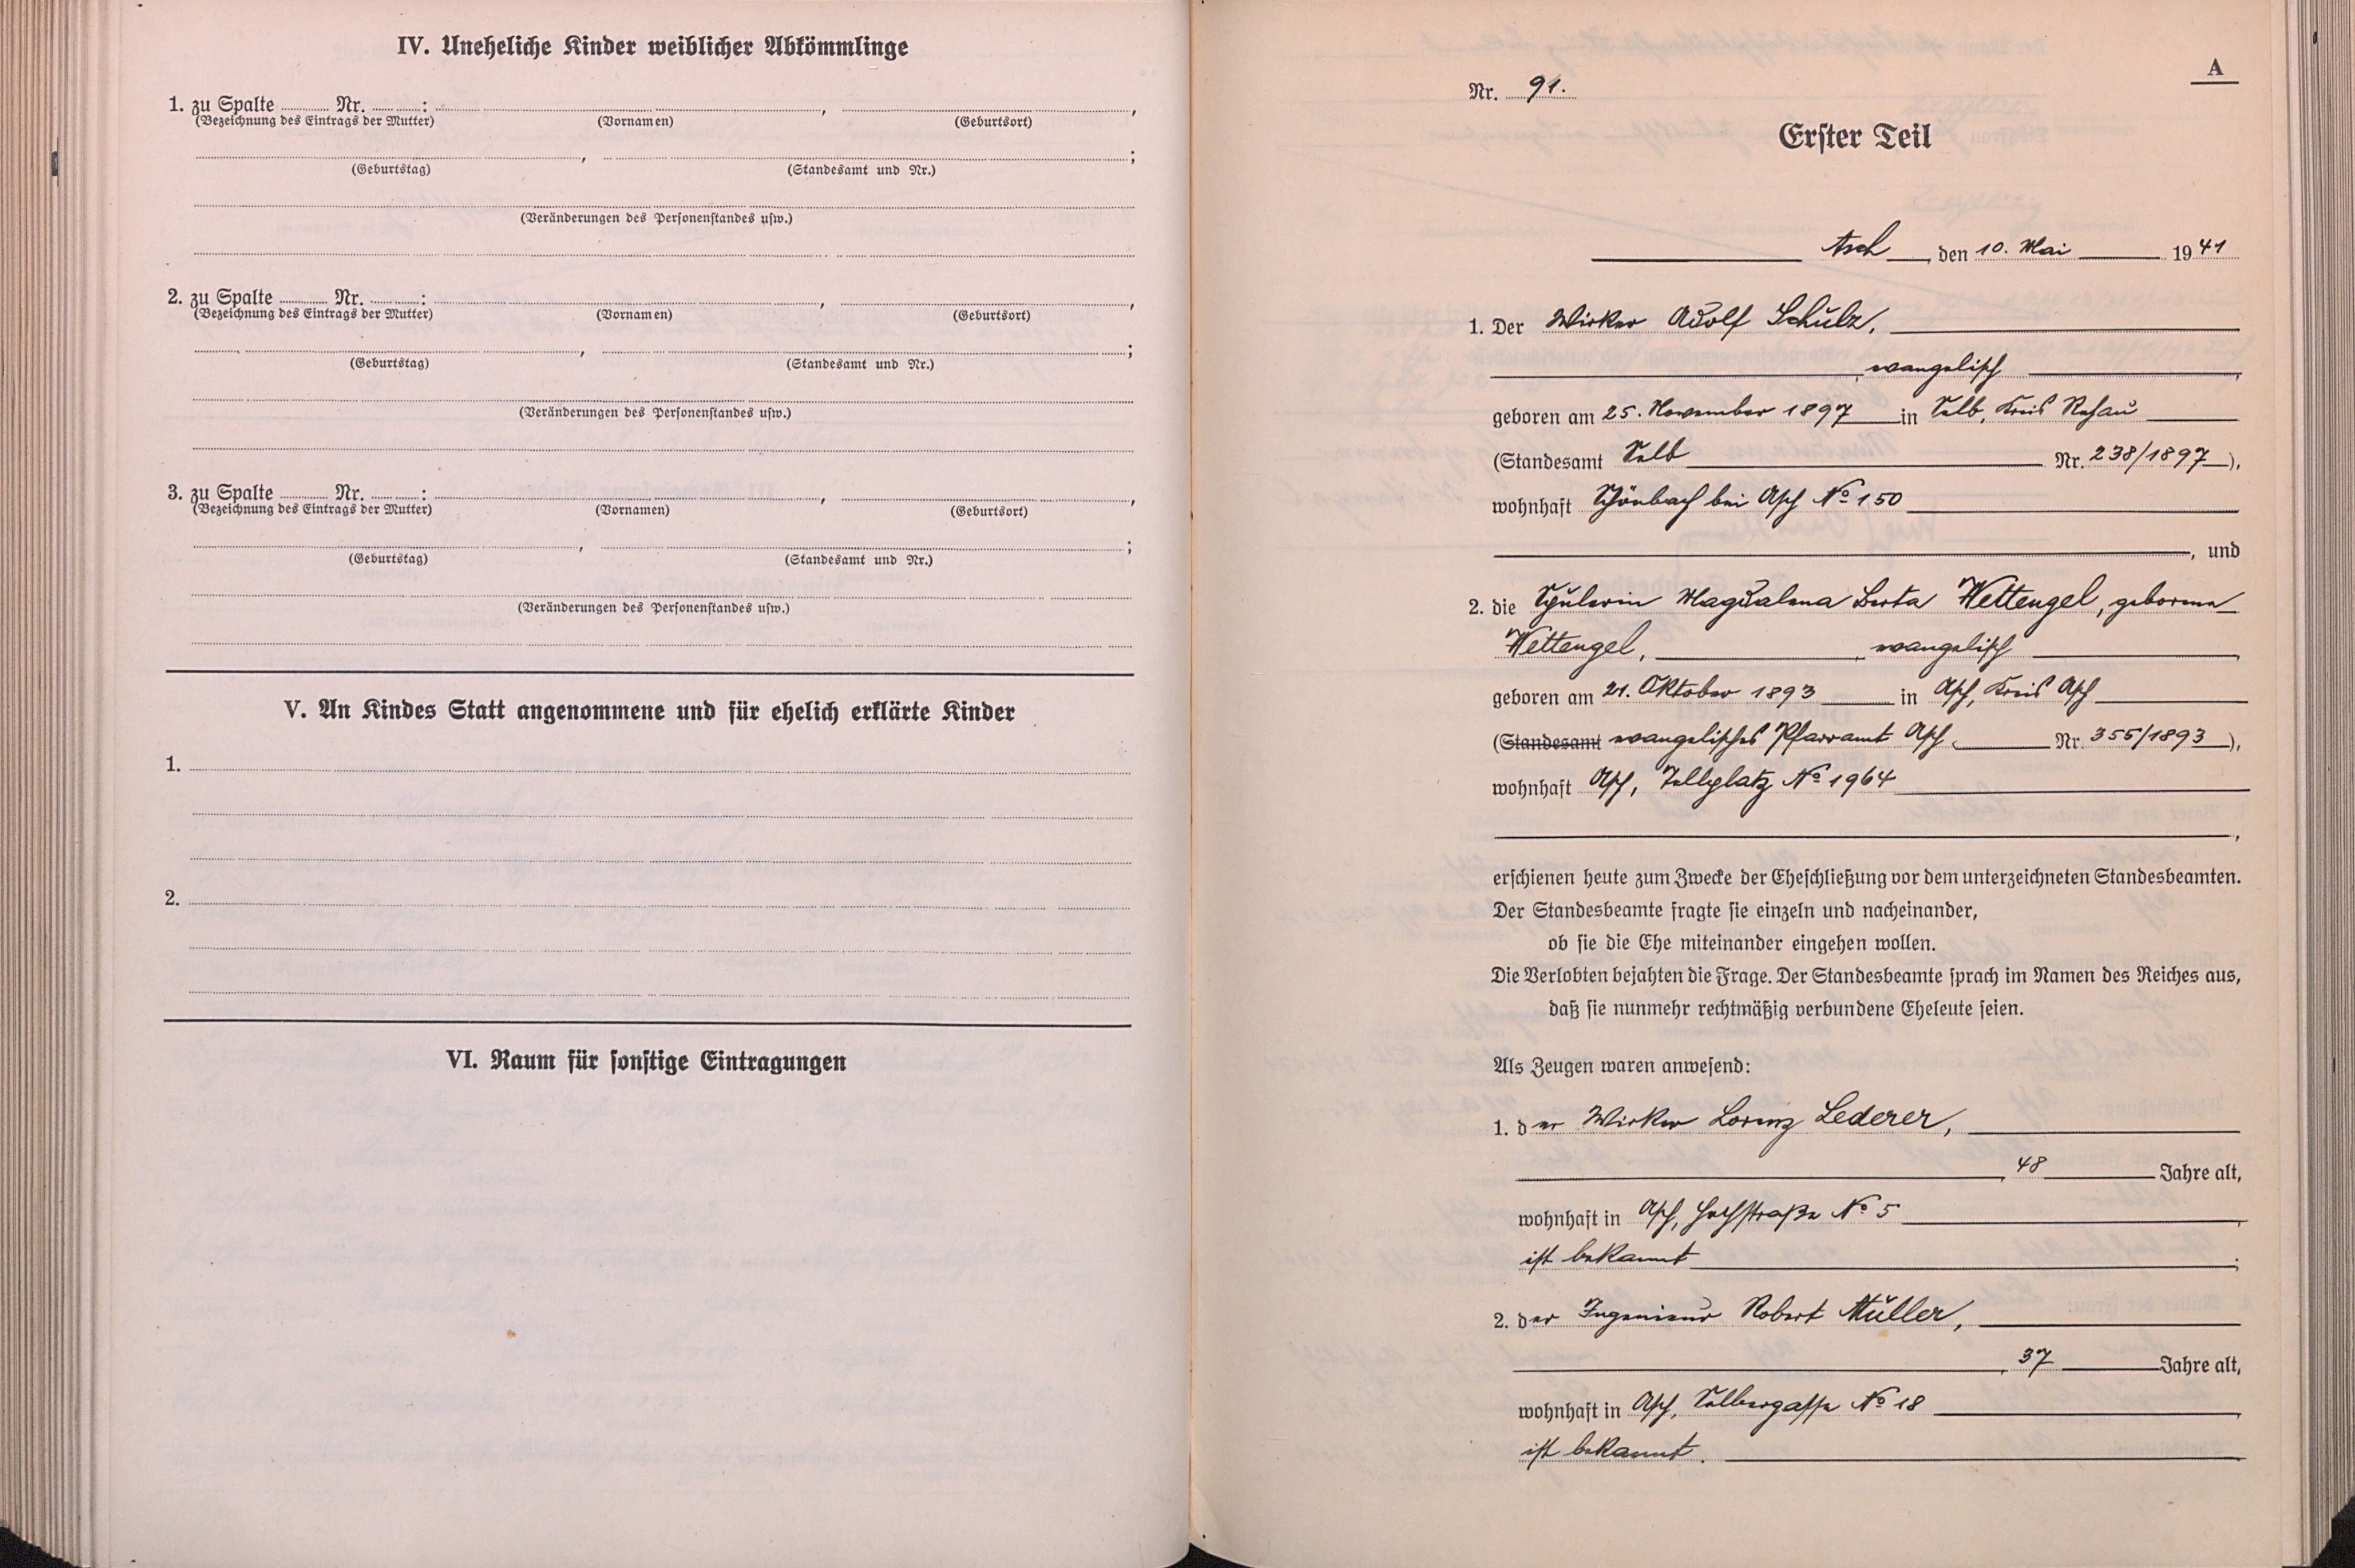 IV. Uneheliche Kinder weiblicher Abkömmlinge
1. zu Spalte Nr. : , ,
(Bezeichnung des Eintrags der Mutter) (Vornamen) (Geburtsort)
, ;
(Geburtstag) (Standesamt und Nr.)
(Veränderungen des Personenstandes usw.)
2. zu Spalte Nr. : , ,
(Bezeichnung des Eintrags der Mutter) (Vornamen) (Geburtsort)
, ;
(Geburtstag) (Standesamt und Nr.)
(Veränderungen des Personenstandes usw.)
3. zu Spalte Nr. : , ,
(Bezeichnung des Eintrags der Mutter) (Vornamen) (Geburtsort)
, ;
(Geburtstag) (Standesamt und Nr.)
(Veränderungen des Personenstandes usw.)
V. An Kindes Statt angenommene und für ehelich erklärte Kinder
1.
2.
VI. Raum für sonstige Eintragungen
A
Nr. 91.
Erster Teil
Asch, den 10. Mai 1941
1. Der Wirker Adolf Schulz,
, evangelisch ,
geboren am 25. November 1897 in Selb, Kreis Rehau
(Standesamt Selb Nr. 238/1897),
wohnhaft Schönbach bei Asch No 150
, und
2. die Spulerin Magdalena Berta Wettengel, geborene
Wettengel, , evangelisch ,
geboren am 21. Oktober 1893 in Asch, Kreis Asch
(Standesamt evangelisches Pfarramt Asch Nr. 355/1893),
wohnhaft Asch, Tellplatz No 1964
,
erschienen heute zum Zwecke der Eheschließung vor dem unterzeichneten Standesbeamten.
Der Standesbeamte fragte sie einzeln und nacheinander,
ob sie die Ehe miteinander eingehen wollen.
Die Verlobten bejahten die Frage. Der Standesbeamte sprach im Namen des Reiches aus,
daß sie nunmehr rechtmäßig verbundene Eheleute seien.
Als Zeugen waren anwesend:
1. der Wirker Lorenz Lederer,
, 48 Jahre alt,
wohnhaft in Asch, Hochstraße No 5 ,
ist bekannt ;
2. der Ingenieur Robert Müller,
, 37 Jahre alt,
wohnhaft in Asch, Selbergasse No 18 ,
ist bekannt.